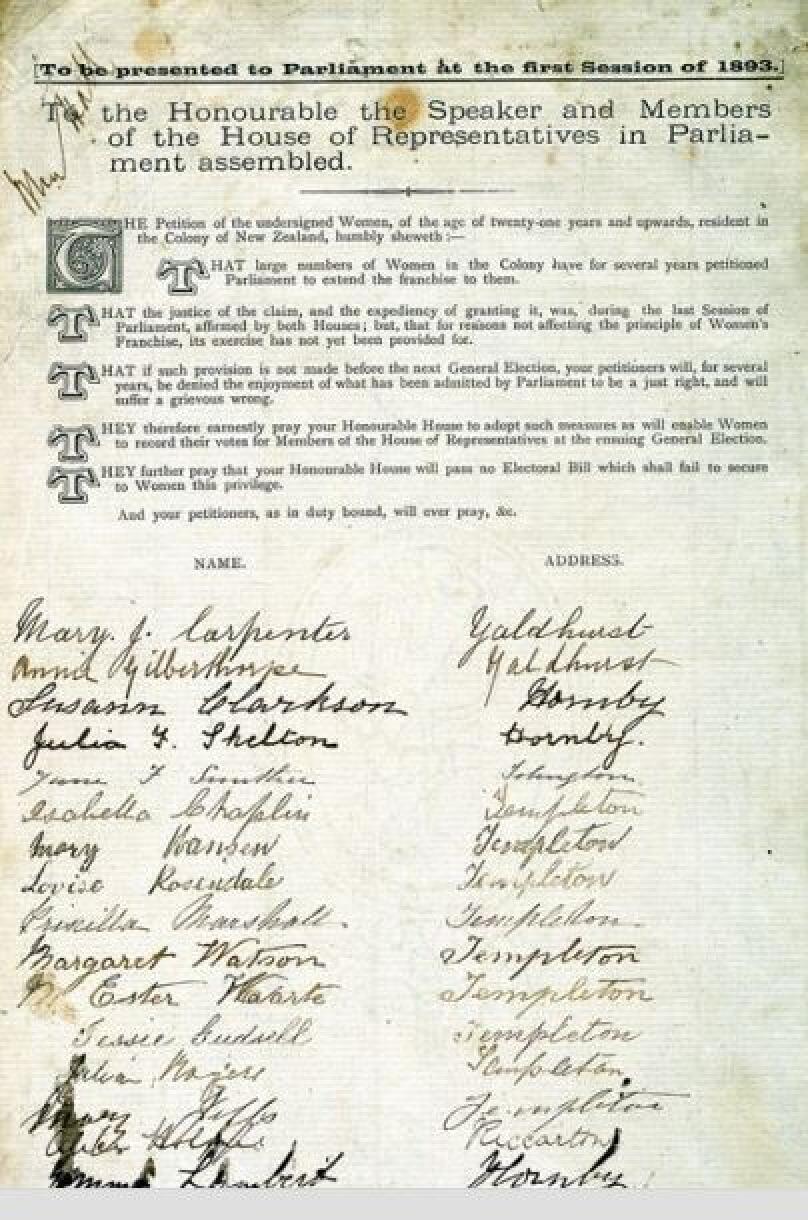 [To be presented to Parliament at the first Session of 1893.]
To the Honourable the Speaker and Members
of the House of Representatives in Parlia-
ment assembled.
THE Petition of the undersigned Women, of the age of twenty-one years and upwards, resident in
the Colony of New Zealand, humbly sheweth:—
THAT large numbers of Women in the Colony have for several years petitioned
Parliament to extend the franchise to them.
THAT the justice of the claim, and the expediency of granting it, was, during the last Session of
Parliament, affirmed by both Houses; but, that for reasons not affecting the principle of Women's
Franchise, its exercise has not yet been provided for.
THAT if such provision is not made before the next General Election, your petitioners will, for several
years, be denied the enjoyment of what has been admitted by Parliament to be a just right, and will
suffer a grievous wrong.
THEY therefore earnestly pray your Honourable House to adopt such measures as will enable Women
to record their votes for Members of the House of Representatives at the ensuing General Election.
THEY further pray that your Honourable House will pass no Electoral Bill which shall fail to secure
to Women this privilege.
And your petitioners, as in duty bound, will ever pray, &c.
NAME. ADDRESS.
Mary. J. Carpenter Yaldhurst
Annie Gilberthorpe Yaldhurst
Susann Clarkson Hornby
Julia F. Shelton Hornby.
Isabella Chaplin Templeton
Mary Hansen Templeton
Louise Rosendale Templeton
Priscilla Marshall. Templeton
Margaret Watson Templeton
Ester Templeton
Jessie Templeton
Julia Templeton
Templeton
Riccarton
Emma Lambert Hornby